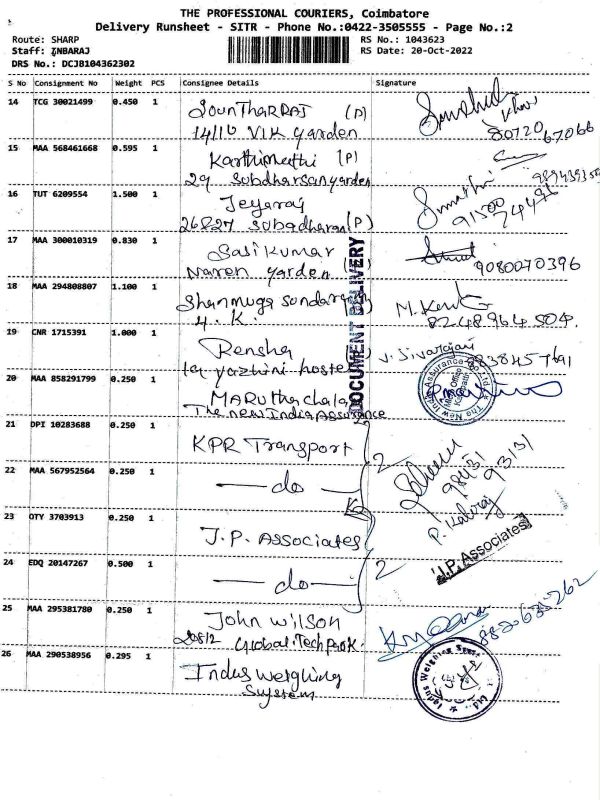 THE PROFESSIONAL COURIERS, Coimbatore
Delivery Runsheet - SITR - Phone No.:0422-3505555 - Page No.:2
Route: SHARP
RS No.: 1043623
Staff: INBARAJ
RS Date: 20-Oct-2022
DRS No.: DCJB104362302
S No Consignment No Weight PCS Consignee Details Signature
14 TCG 30021499 0.450 1 SounTharRaj (P)
14/1b VIK Garden
80720 67066
15 MAA 568461668 0.595 1 Karthimuthi (P)
29 Subdharsan garden
16 TUT 6209554 1.500 1 Jeyaraj
26&27 Subadharan (P)
91500 74491
17 MAA 300010319 0.830 1 Sasikumar
Naren garden
9080070396
18 MAA 294808807 1.100 1 Shanmuga Sundaram
4. K.
82 48 964 504
19 CNR 1715391 1.000 1 Rensha
yazhini hostel
20 MAA 858291799 0.250 1 MARUThachala
The new India Assurance
The New India Assurance Co. Ltd.
DOCUMENT DELIVERY
21 DPI 10283688 0.250 1 KPR Transport
2
22 MAA 567952564 0.250 1 — do —
98431 93131
23 OTY 3703913 0.250 1 J.P. Associates
J.P. Associates
24 EDQ 20147267 0.500 1 — do —
2
25 MAA 295381780 0.250 1 John Wilson
Global Tech Park.
26 MAA 290538956 0.295 1 Indus Weighing
System
Indus Weighing